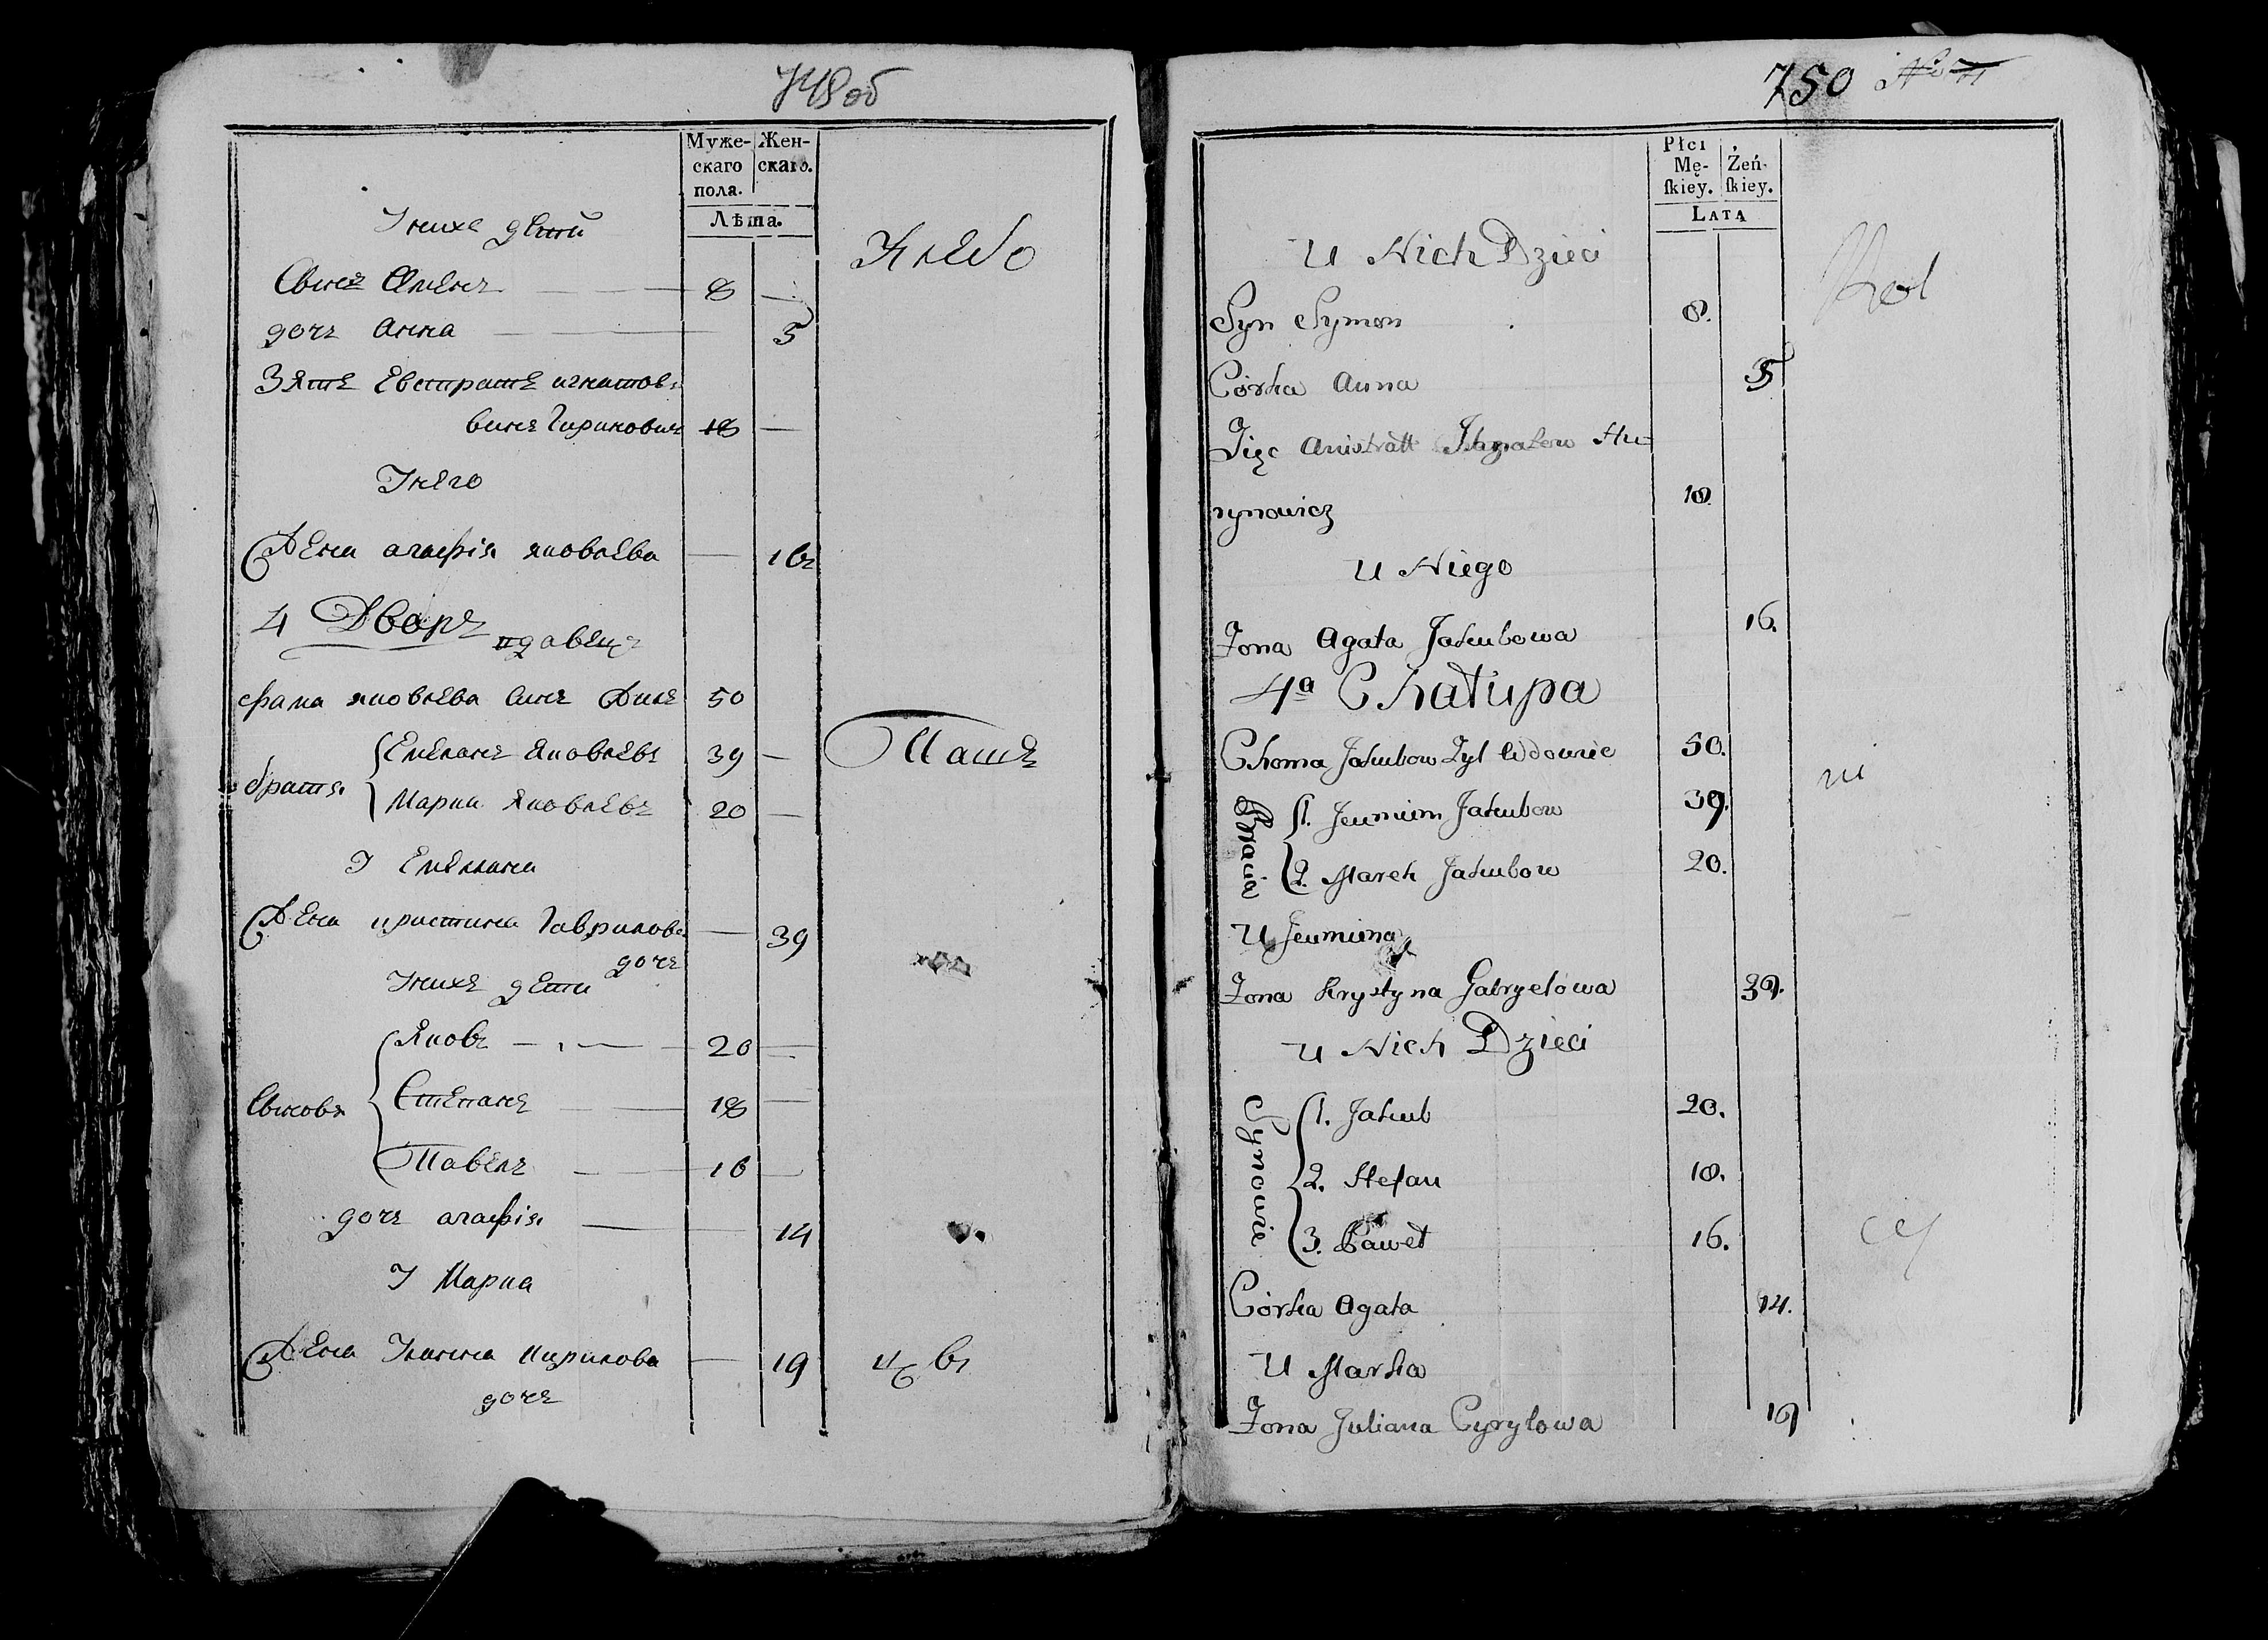 748об
Муже-
скаго
пола.
Жен-
скаго.
Лѣта.
Унихъ дети
Сынъ Семенъ 8 —
дочь анна 5
Зять Евстратъ игнатов
сынъ 18 —
Унего
Жена агафія яковлева — 16
4 Дворъ
хома яковлева синъ 50
братя
Емелянъ Яковлевъ 39 —
Марко Яковлевъ 20 —
У Емеляна
Жена кристина Гаврилова — 39
дочь
Унихъ дети
Сыновя
Яковъ 20 —
Степанъ 18 —
Павелъ 16 —
дочь агафія 14
У Марка
Жена Улияна Кирилова — 19
дочь
750
Płci
Mę-
ſkiey.
Żeń-
ſkiey.
LATA
U Nich Dzieci
Syn Symon 8.
Córka Anna 5
Zięc Ihnatow Hu-
rynowicz 18.
U Niego
Żona Agata Jakubowa 16.
4a Chałupa
Choma Jakubow Żył Wdowiec 50.
Bracia
1. Jeumium Jakubow 39.
2. Marek Jakubow 20.
U Jeumiuna
Żona Krystyna Gabryelowa 39.
U Nich Dzieci
Synowie
1. Jakub 20.
2. Stefan 18.
3. Paweł 16.
Córka Agata 14.
U Marka
Żona Juliana Cyryłowa 19